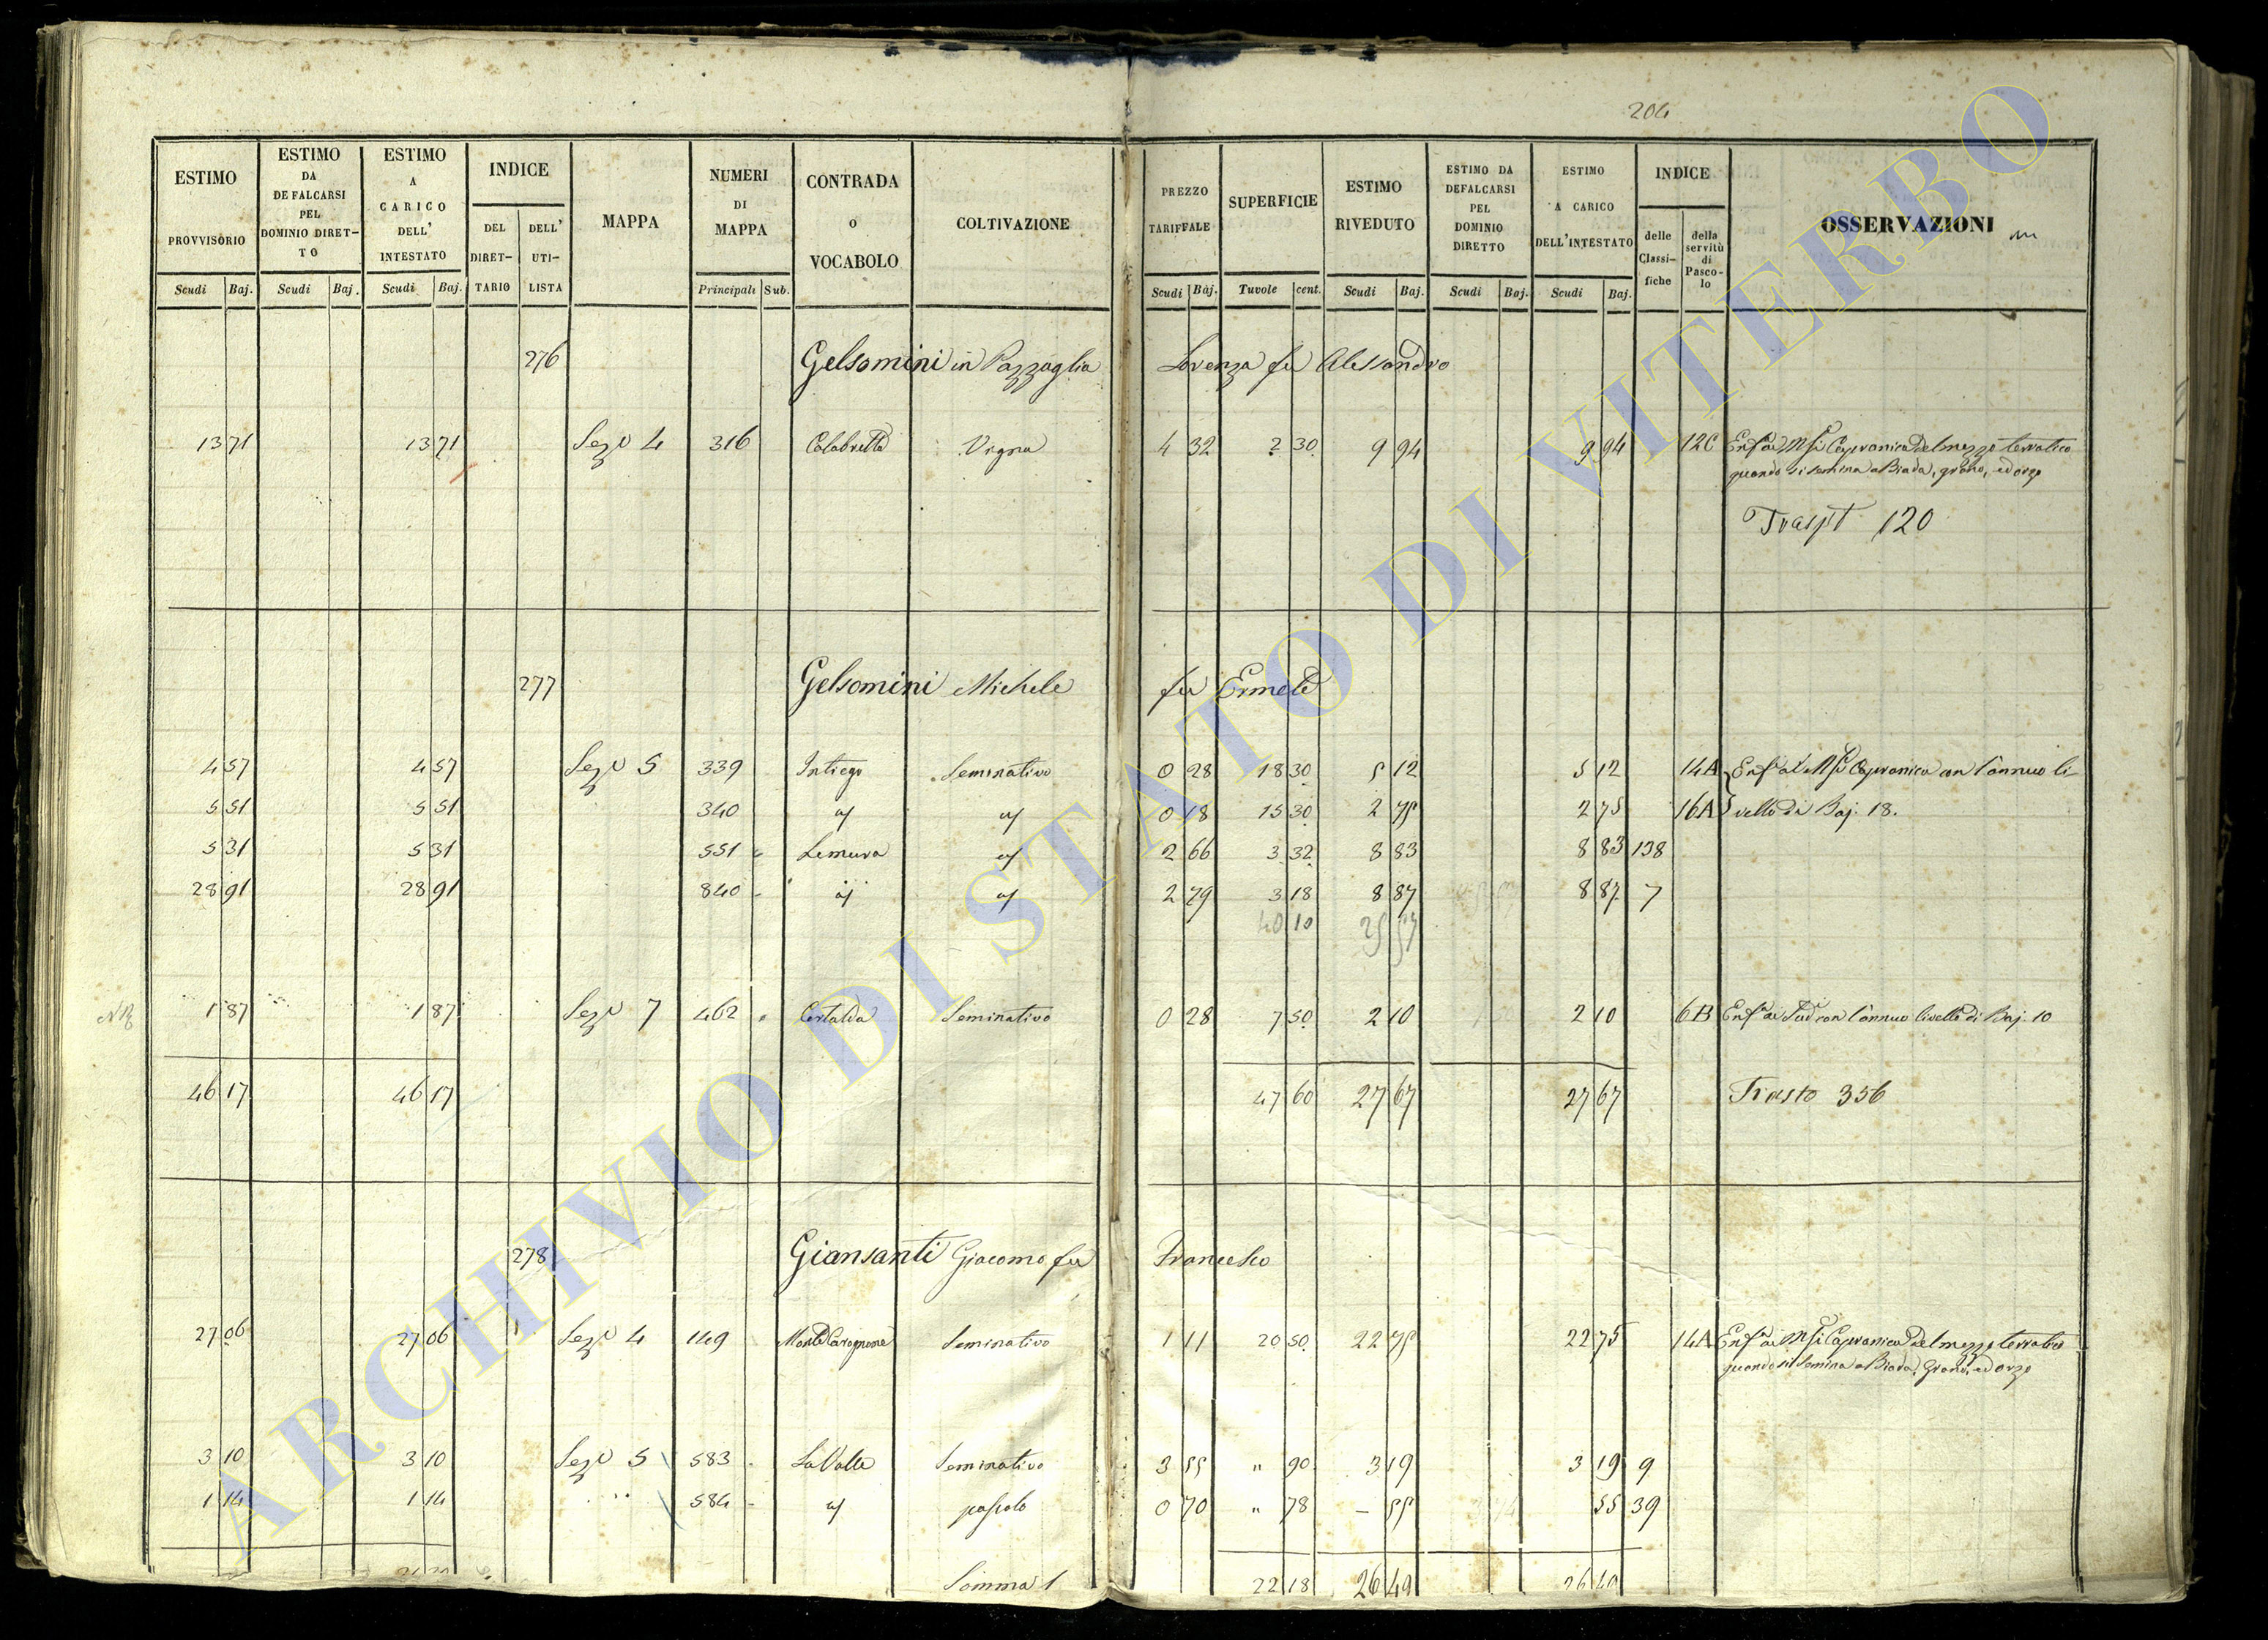 204
ESTIMO PROVVISORIO Scudi Baj.
ESTIMO DA DEFALCARSI PEL DOMINIO DIRET-TO Scudi Baj.
ESTIMO A CARICO DELL' INTESTATO Scudi Baj.
INDICE DEL DIRET-TARIO DELL' UTI-LISTA
MAPPA
NUMERI DI MAPPA Principali Sub.
CONTRADA O VOCABOLO
COLTIVAZIONE
PREZZO TARIFFALE Scudi Baj.
SUPERFICIE Tavole cent.
ESTIMO RIVEDUTO Scudi Baj.
ESTIMO DA DEFALCARSI PEL DOMINIO DIRETTO Scudi Baj.
ESTIMO A CARICO DELL'INTESTATO Scudi Baj.
INDICE delle Classi-fiche della servitù di Pasco-lo
OSSERVAZIONI
276 Gelsomini in Pazzaglia Lorenza fu Alessandro
13 71 13 71 Sez. 4 316 Calabretta Vigna 4 32 2 30 9 94 9 94 12C Enf. a Capranica del mezzo terratico
quando si semina a Biada, grano, ed orzo
Traspt 120
277 Gelsomini Michele fu Ermete
4 57 4 57 Sez. 5 339 Intiego Seminativo 0 28 18 30 5 12 5 12 14A Enf. a Capranica con l'annuo li-
5 51 5 51 340 0 18 15 30 2 75 2 75 16A vello di Baj. 18.
5 31 5 31 551 Lemura 2 66 3 32 8 83 8 83 138
28 91 28 91 840 2 79 3 18 8 87 8 87 7
40 10 25 57
1 87 1 87 Sez. 7 462 Certalda Seminativo 0 28 7 50 2 10 2 10 6B Enf. con l'annuo livello di Baj. 10
46 17 46 17 47 60 27 67 27 67 Trasto 356
278 Giansanti Giacomo fu Francesco
27 06 27 06 Sez. 4 149 Monte Seminativo 1 11 20 50 22 75 22 75 14A Enf. a Capranica del mezzo terratico
quando si Semina a Biada, Grano, ed orzo
3 10 3 10 Sez. 5 583 La Valle Seminativo 3 55 " 90 3 19 3 19 9
1 14 1 14 584 pascolo 0 70 " 78 – 55 55 39
Somma 22 18 26 49 26 49
ARCHIVIO DI STATO DI VITERBO